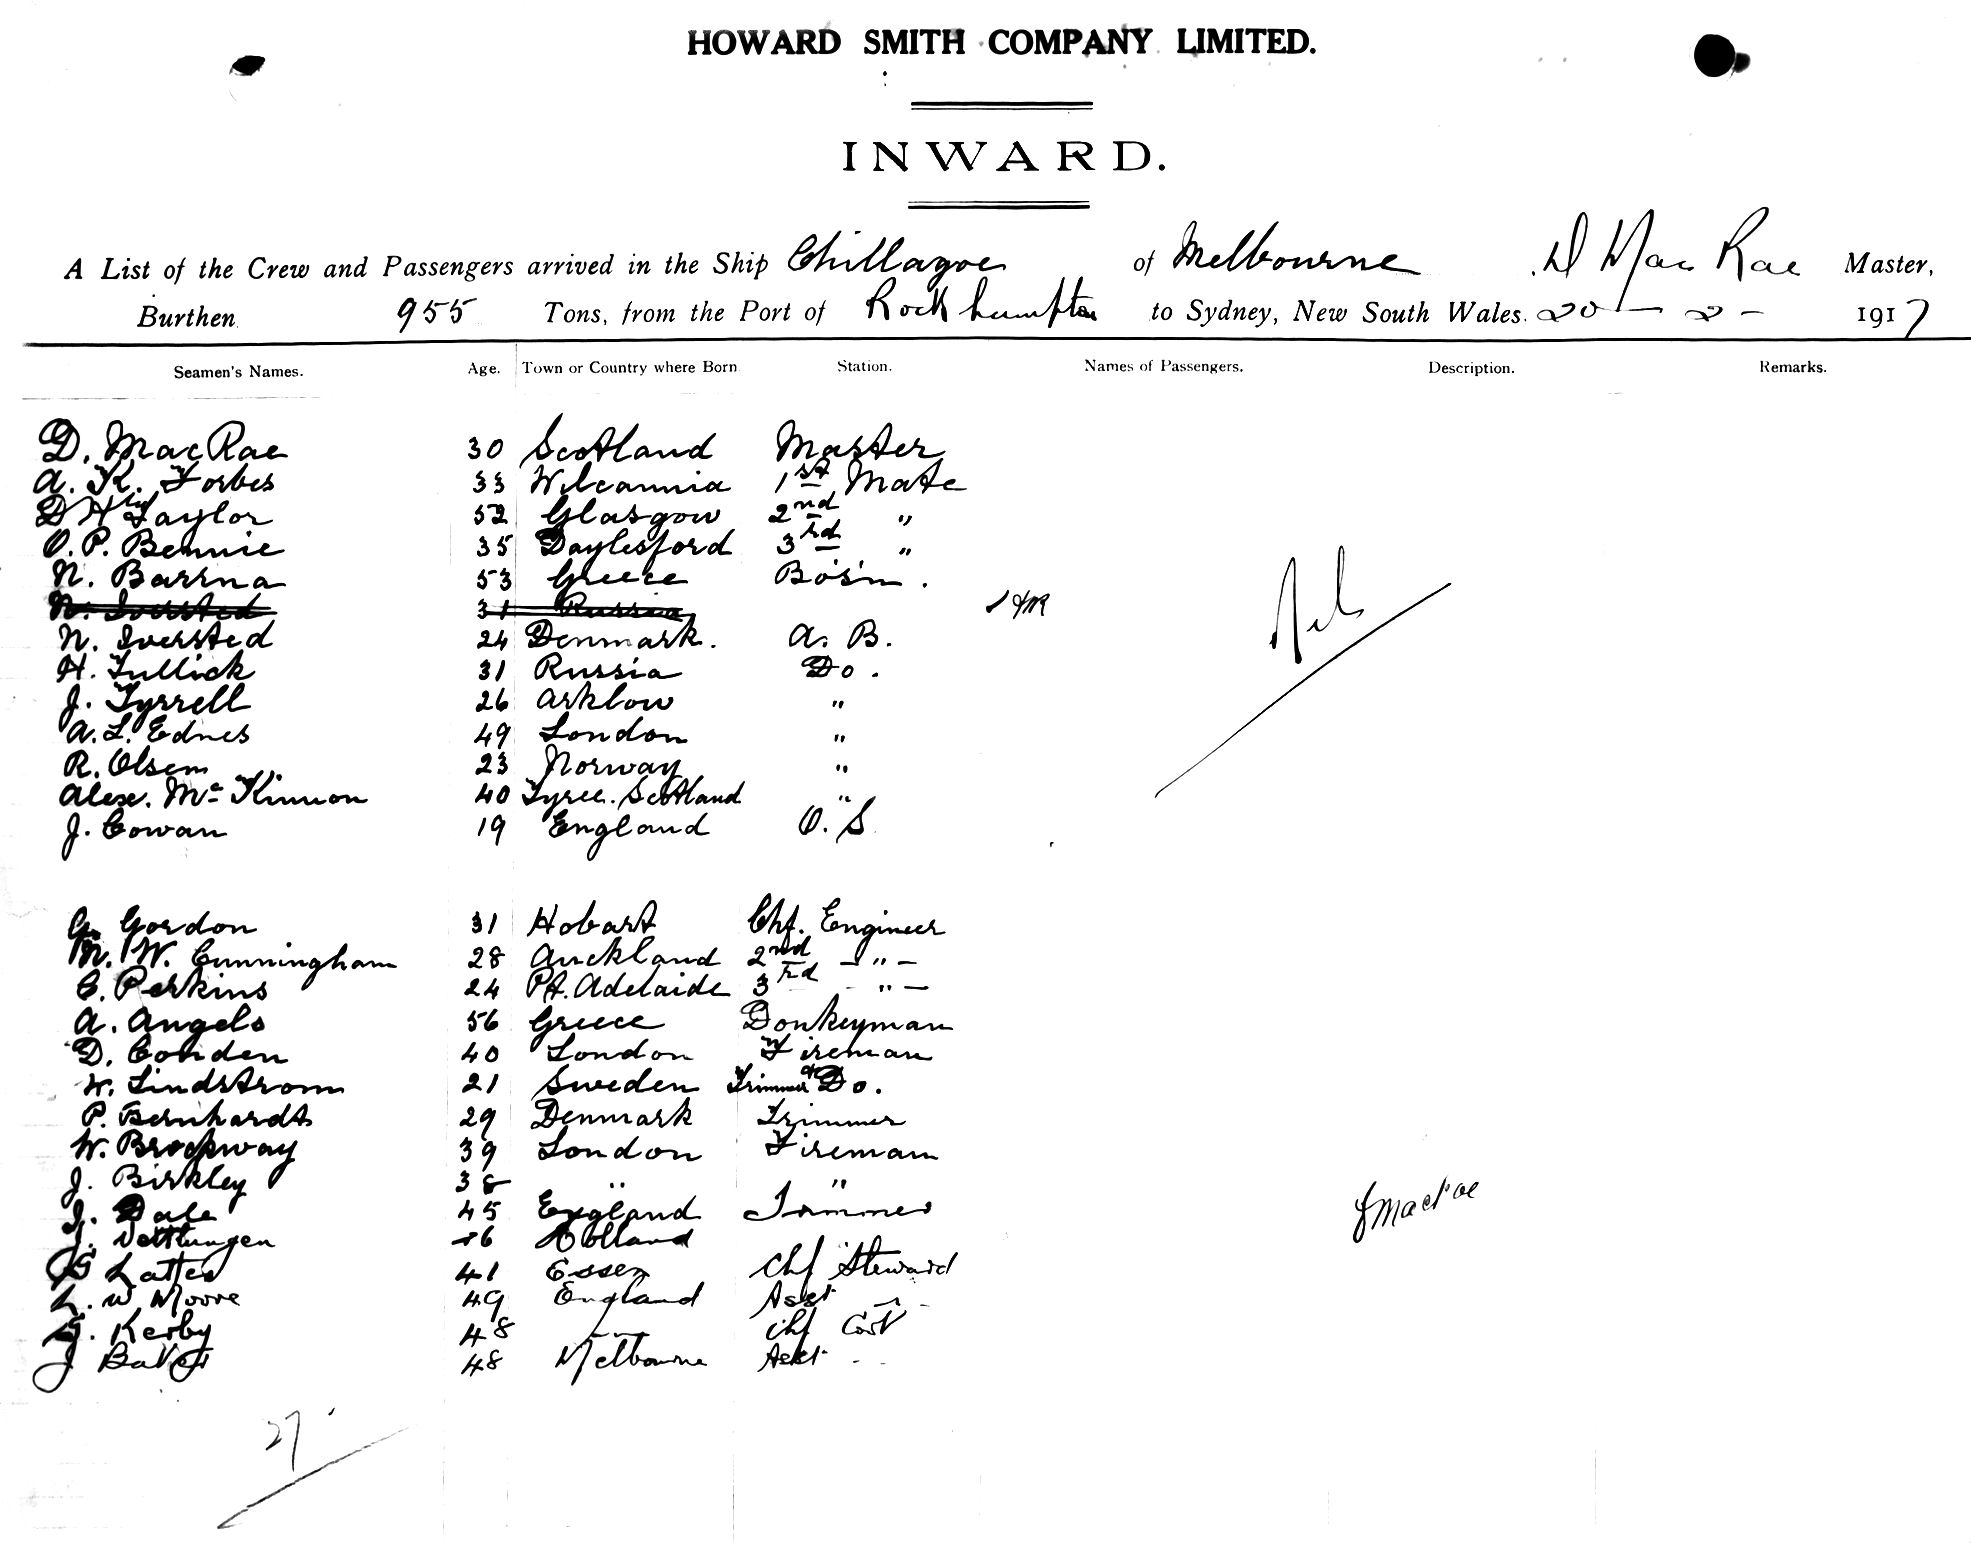 HOWARD SMITH COMPANY LIMITED.
INWARD.
A List of the Crew and Passengers arrived in the Ship Chillagoe of Melbourne D MacRae Master,
Burthen 955 Tons, from the Port of Rockhampton to Sydney, New South Wales. 20 - 2 - 1917
Seamen's Names. Age. Town or Country where Born Station. Names of Passengers. Description. Remarks.
D. MacRae 30 Scotland Master
A. K. Forbes 33 Wilcannia 1st Mate
D Hy Taylor 52 Glasgow 2nd "
O. P. Bennie 35 Daylesford 3rd "
N. Barrna 53 Greece Bo's'n.
N. Iversted 31 Russia
N. Iversted 24 Denmark. A. B.
H. Tullick 31 Russia Do.
J. Tyrrell 26 Arklow "
A. L. Ednes 49 London "
R. Olsen 23 Norway "
Alex. McKinnon 40 Tyree. Scotland "
J. Cowan 19 England O. S
G. Gordon 31 Hobart Chf. Engineer
N. W. Cunningham 28 Auckland 2nd - " -
C. Perkins 24 Pt. Adelaide 3rd - " -
A. Angelo 56 Greece Donkeyman
D. Conden 40 London Fireman
W. Lindstrom 21 Sweden Trimmer Do.
P. Bernhardt 29 Denmark Trimmer
W. Brockway 39 London Fireman
J. Birkley 38 " "
J. Dale 45 England Trimmer
J. 26 Holland
Lattes 41 Essex Chf Steward
L. W Moore 49 England Asst -
G. Kerby 48 Chf Cook
J Baker 48 Melbourne Asst
Nil
D MacRae
27